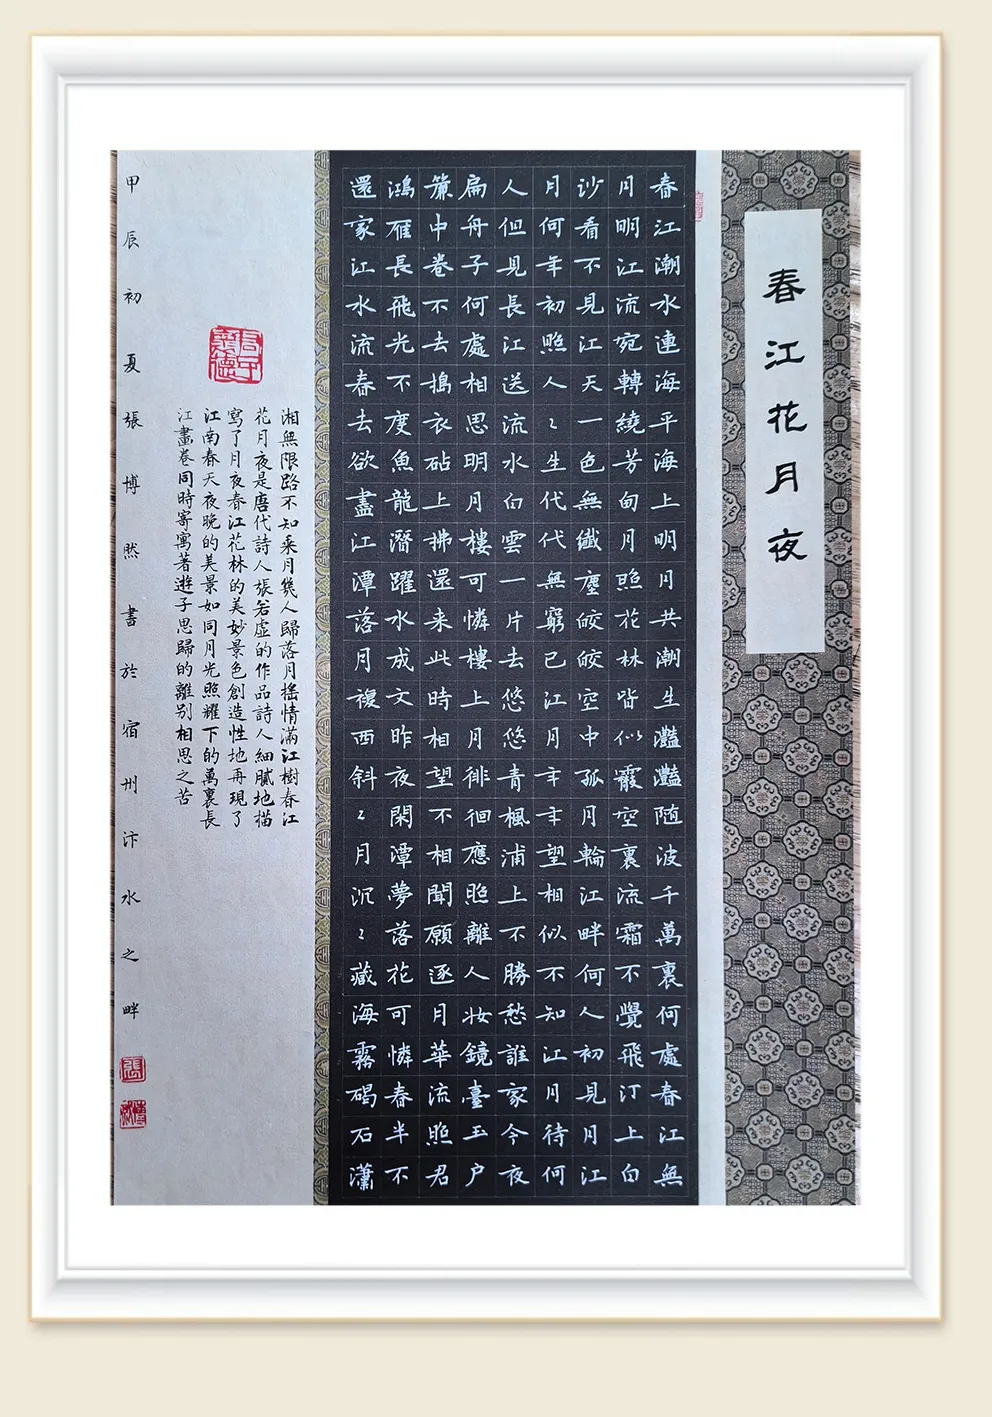 春江花月夜
春江潮水連海平海上明月共潮生灩灩随波千萬裏何處春江無
月明江流宛轉繞芳甸月照花林皆似霰空裏流霜不覺飛汀上白
沙看不見江天一色無纖塵皎皎空中孤月輪江畔何人初見月江
月何年初照人〻生代代無窮已江月年年望相似不知江月待何
人但見長江送流水白雲一片去悠悠青楓浦上不勝愁誰家今夜
扁舟子何處相思明月樓可憐樓上月徘徊應照離人妝鏡臺玉户
簾中卷不去搗衣砧上拂還来此時相望不相聞願逐月華流照君
鴻雁長飛光不度魚龍潛躍水成文昨夜閑潭夢落花可憐春半不
還家江水流春去欲盡江潭落月複西斜〻月沉〻藏海霧碣石瀟
湘無限路不知乘月幾人歸落月搖情滿江樹春江
花月夜是唐代詩人張若虛的作品詩人細膩地描
寫了月夜春江花林的美妙景色創造性地再現了
江南春天夜晚的美景如同月光照耀下的萬裏長
江畫卷同時寄寓著遊子思歸的離别相思之苦
甲辰初夏張博然書於宿州汴水之畔
張
博然